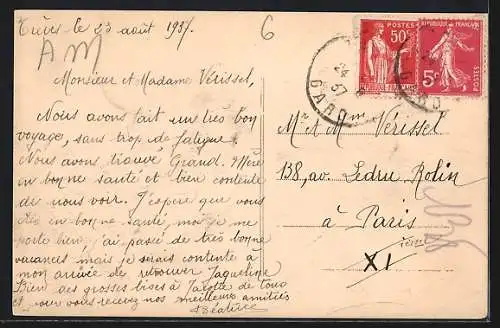 Trèves le 23 août 1937.
AM
6
Monsieur et Madame Vérissel,
Nous avons fait un très bon
voyage, sans trop de fatigue.
Nous avons trouvé Grand. Mère
en bonne santé et bien contente
de nous voir. J'espère que vous
êtes en bonne santé, moi je me
porte bien, j'ai passé de très bonne
vacances mais je serais contente à
mon arrivée de retrouver Jaqueline
Bien des grosses bises à de tous
et vous recevez nos meilleurs amitiés
Béatrice
POSTES
50c
RÉPUBLIQUE FRANÇAISE
5c
POSTES
24
37
GARD
GARD
Mr et Mme Vérissel
138, av. Ledru Rolin
à Paris
XI ième